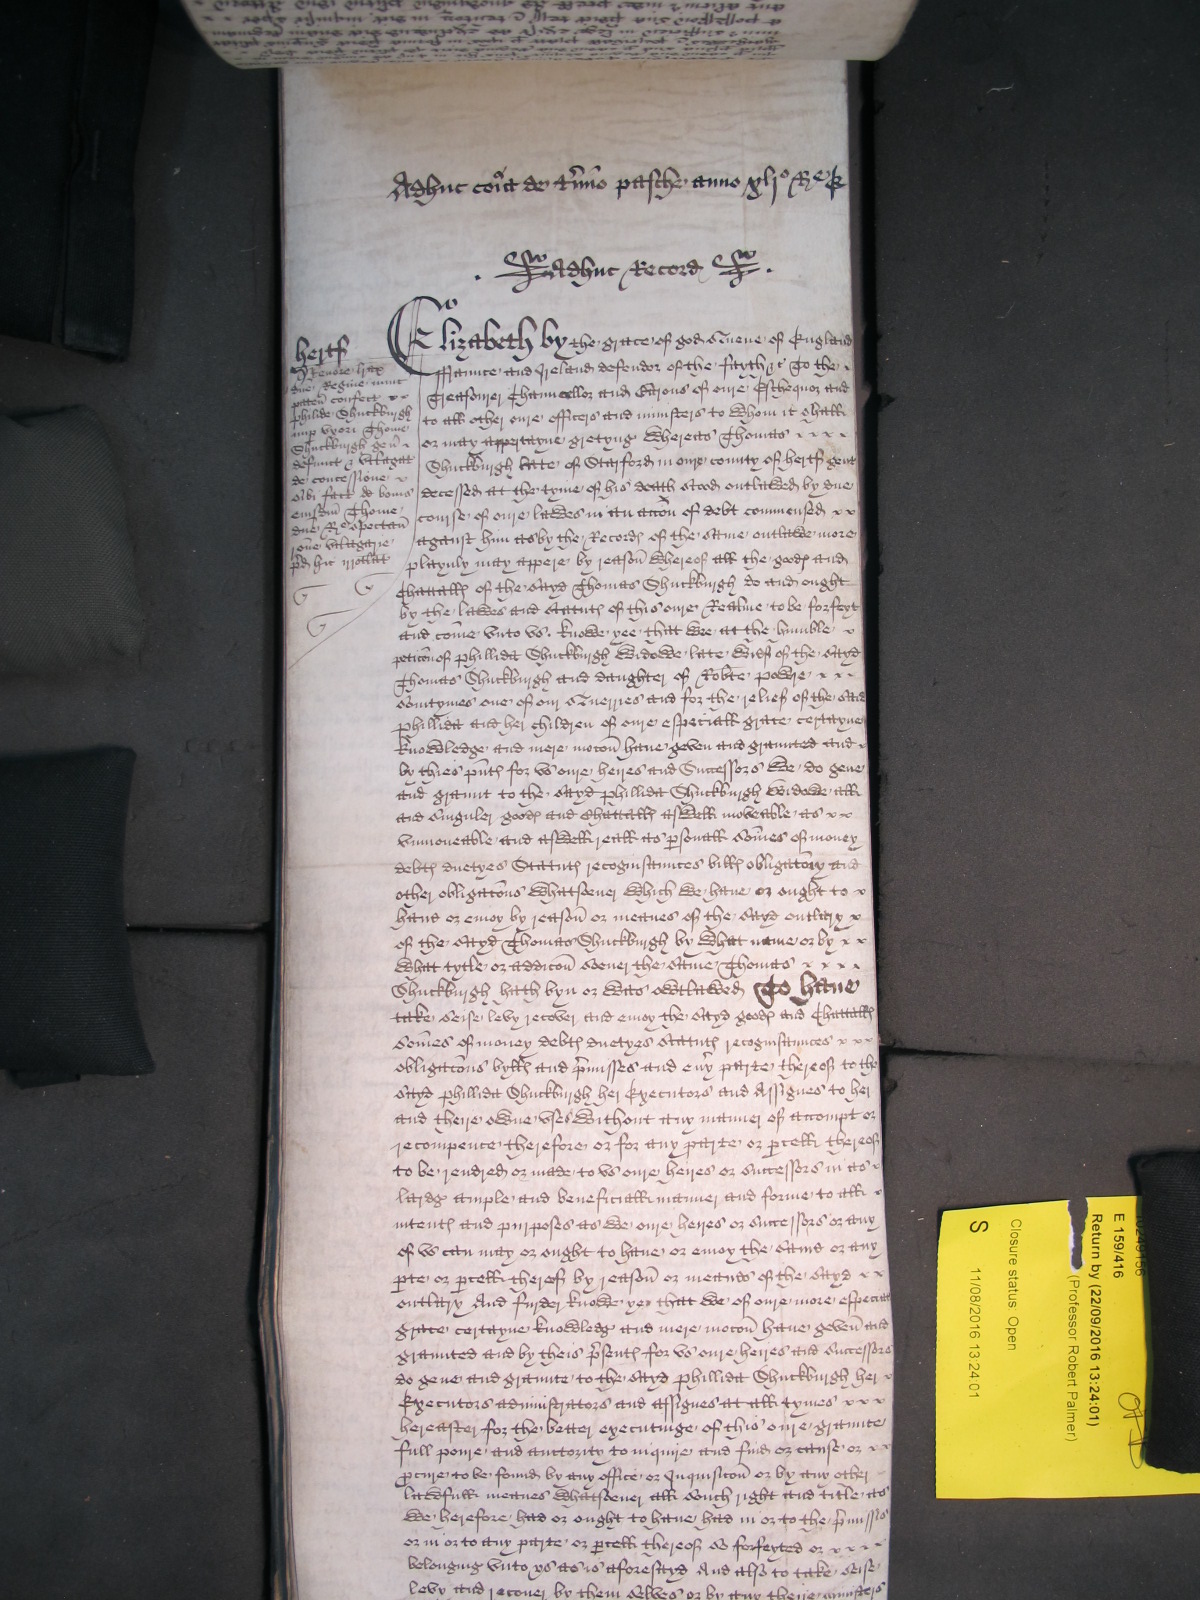 Adhuc coĩa de t̃mino pasche anno xljᵒ Rᵉ E
Adhuc Record
hertf
Tenore lr̃ax
dñe Regine nunc
paten̄ confect
philide Shuckburgh
nup vxori Thome
Shuckburgh gen̄
defunct & vtlagat
de concessione
sibi fact de bonis
eiusdm̄ Thome
dñe Rᵉ spectan̄
rõne vtlagarie
pd hic irrotlat
Elizabeth by the grace of god Quene of England
ffraunce and Ireland defendor of the fayth &c To the
Treasorer Chauncellor and Barons of oure Exchequor and
to all other oure officers and ministers to whom it shall
or may appertayne gretyng Whereas Thomas
Shuckburgh late of Starford in oure county of hertf gent
decessed at the tyme of his death stood outlawed by due
course of oure lawes in an acc̃on of debt commensed
against him as by the Records of the same outlawrie more
playnly may appere by reason whereof all the goods and
Chattalls of the sayd Thomas Shuckburgh do and ought
by the lawes and statuts of this oure Realme to be forfeyt
and com̃e vnto vs. Knowe yee that we at the humble
petic̃on of phillida Shuckburgh Widowe late wief of the sayd
Thomas Shuckburgh and daughter of Robte powre
somtymes one of our Querries and for the relief of the said
phillida and her children of oure especiall grace certayne
knowledge and mere moc̃on have geven and graunted and
by thies p̃nts for vs oure heires and Successors We do geve
and graunt to the sayd phillida Shuckburgh Widowe all
and singuler goods and chattalls aswell moveable as
vnmoveable and aswell reall as p̲sonall som̃es of money
debts duetyes Statuts recognisaunces bills obligatory and
other obligac̃ons whatsoever which we have or ought to
have or enioy by reason or meanes of the sayd outlary
of the sayd Thomas Shuckburgh by what name or by
what tytle or addic̃on soever the same Thomas
Shuckburgh hath byn or was owtlawed To have
take seise levy recover and enioy the sayd goods and Chattalls
som̃es of money debts duetyes statuts recognisaunces
obligac̃ons bylls and p̃misses and ev̾y parte thereof to the
sayd phillida Shuckburgh her Executors and Assignes to her
and there owne vses without any manner of accompt or
recompence therefore or for any parte or p̲cell thereof
to be rendred or made to vs oure heires or successors in as
lardge ample and beneficiall manner and forme to all
intents and purposes as we oure heires or successors or any
of vs can may or ought to have or enioy the same or any
p̲te or p̲cell therof by reason or meanes of the sayd
outlary And furder knowe yee that we of oure more especiall
grace certayne knowledg and mere moc̃on have geven and
graunted and by theis p̃sents for vs oure heires and Successors
do geve and graunte to the sayd phillida Shuckburgh her
Executors administrators and assignes at all tymes
hereafter for the better executinge of this oure graunte
full power and auctority to inquire and find or cause or
p̲cure to be found by any office or Inquisic̃on or by any other
lawfull meanes whatsoever all such right and title as
we herefore had or ought to have had in or to the p̃misses
or in or to any parte or p̲cell thereof so forfeyted or
belonging vnto vs as is aforesayd And also to take seise
levy and recover by them selves or by any there ministers
E 159/416
Return by (22/09/2016 13:24:01)
(Professor Robert Palmer)
Closure status: Open
S 11/08/2016 13:24:01